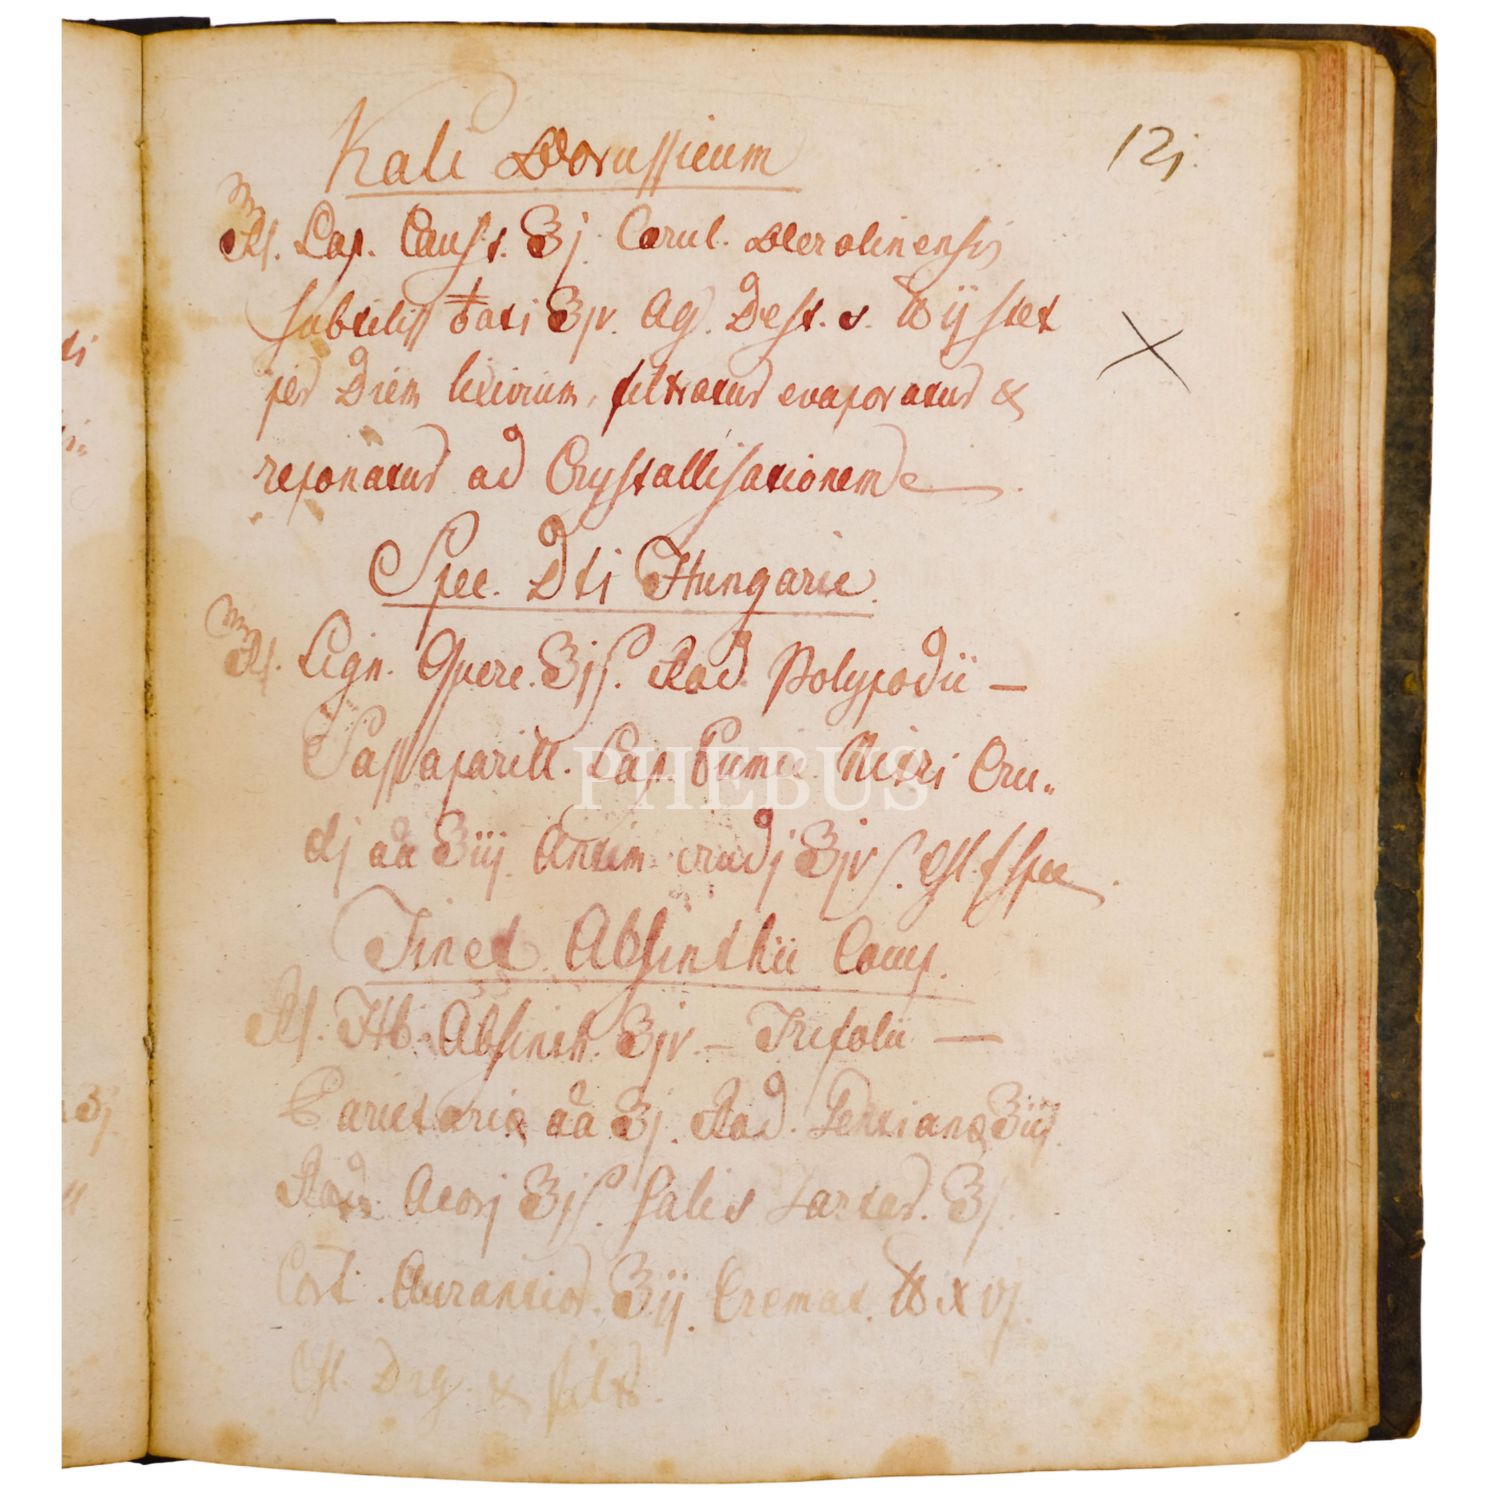 12j.
Kali Borussicum
Rs. Lap. Caust. ℥j. Cærul. Berolinensis
subtiliss ♁ati ℥jv. Aq. Dest. s. ℔ ij stet
per Diem lixivium, filtratur evaporatur &
reponatur ad Crystallisationem
Spec. Dti Hungarie.
Rs. Lign. Querc. ℥jſ. Rad. Polypodii —
Sassaparill. Lap. Pumic. Nitri Cru„
dj aa ℥iij. Antim. crudj ℥jvſ. Ghl. f. spec
Tinct. Absinthii Comp.
Rs. Hb. Absinth. ℥jv. — Trifolii —
Parietariæ aa ℥j. Rad. Gentianæ ℥iij.
Rad. Acorj ℥jſ. Salis Tartar. ℥j.
Cort. Aurantior. ℥ij. Cremat. ℔ xvj.
Dig. & filtr.
PHEBUS
dj
℥j